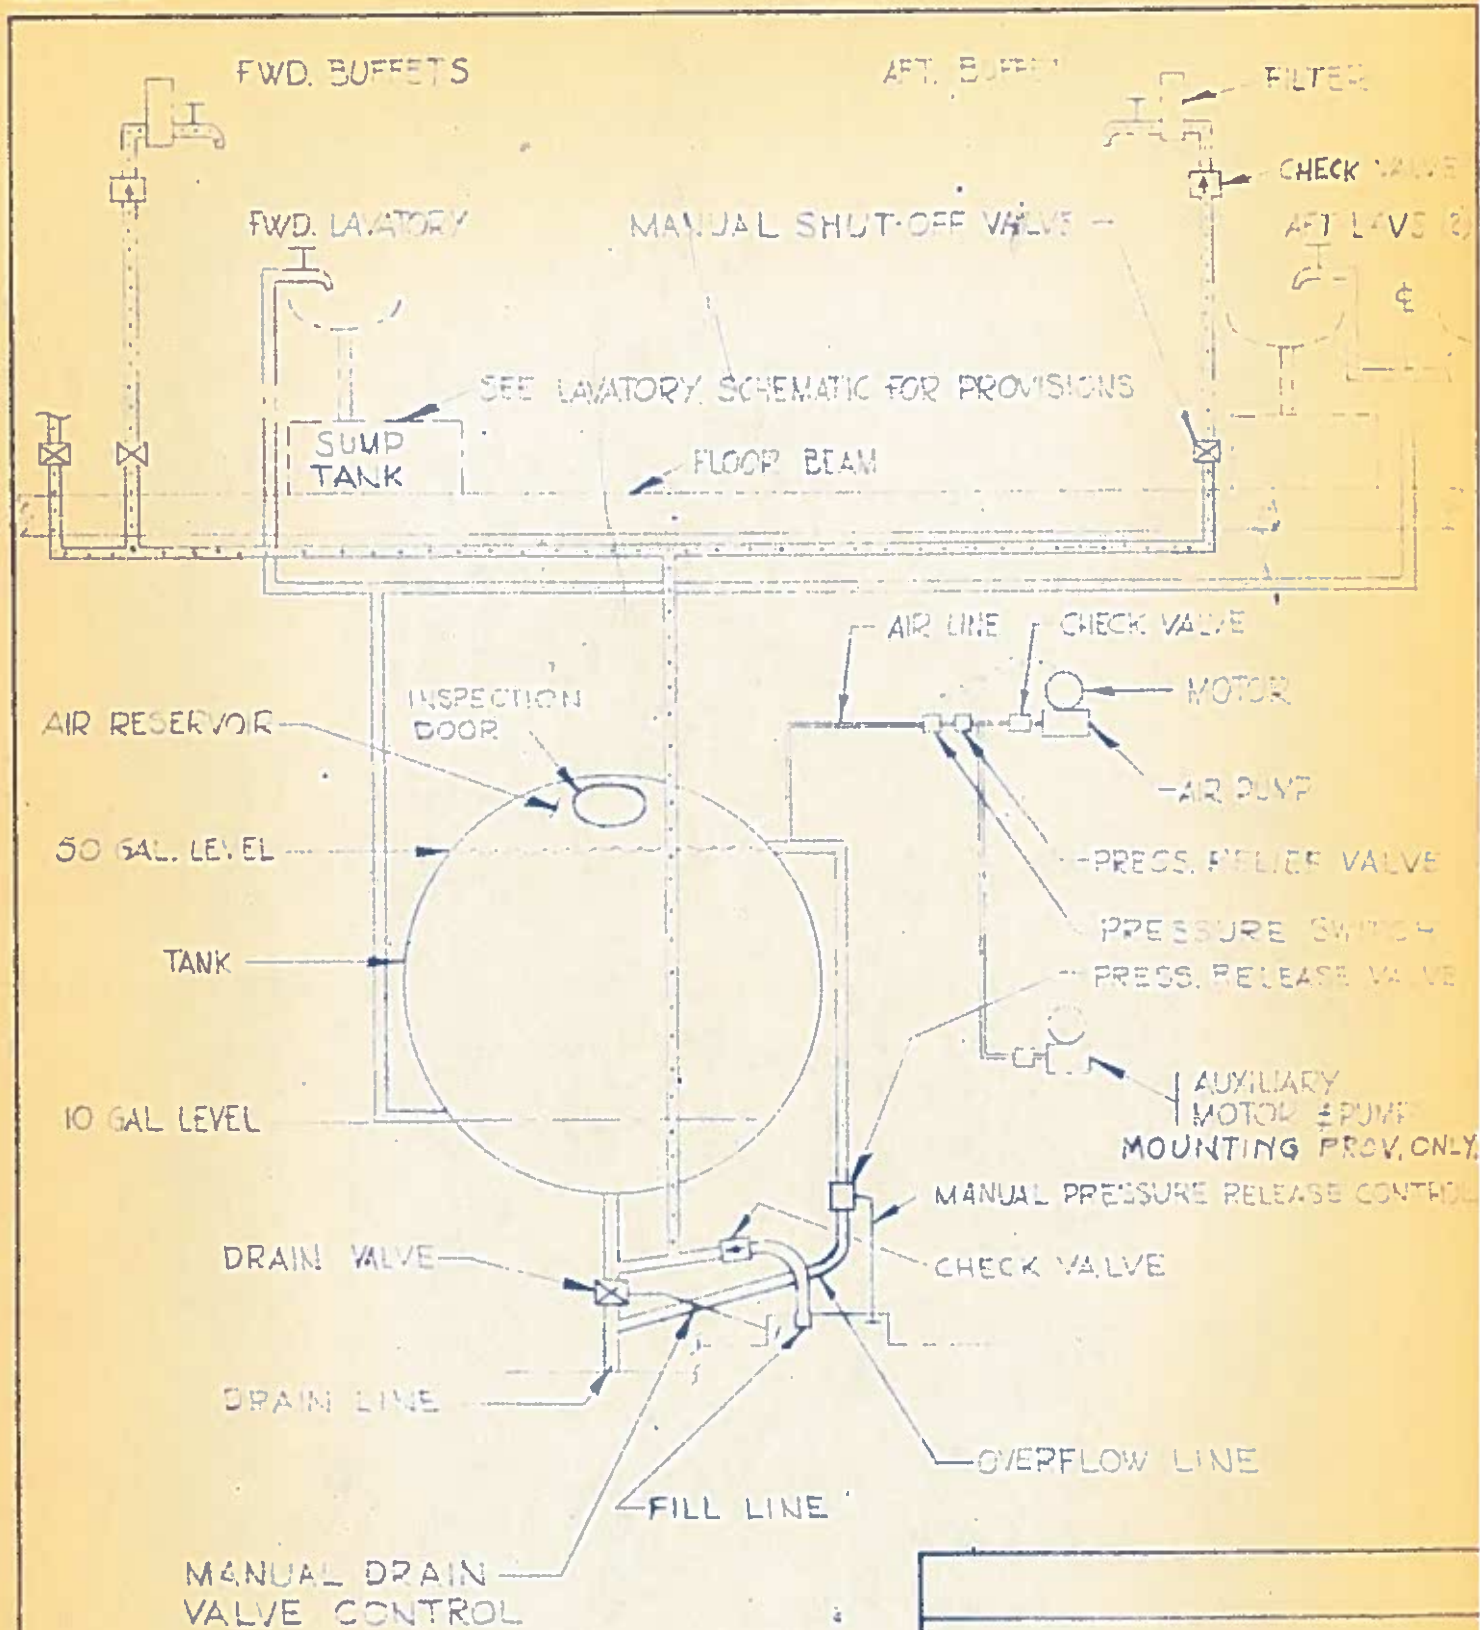 FWD. BUFFETS
AFT. BUFFET
FILTER
CHECK VALVE
FWD. LAVATORY
MANUAL SHUT-OFF VALVE
AFT LAVS (2)
℄
SEE LAVATORY SCHEMATIC FOR PROVISIONS
SUMP
TANK
FLOOR BEAM
AIR LINE
CHECK VALVE
MOTOR
INSPECTION
DOOR
AIR RESERVOIR
AIR PUMP
50 GAL. LEVEL
PRESS. RELIEF VALVE
PRESSURE SWITCH
TANK
PRESS. RELEASE VALVE
AUXILIARY
MOTOR & PUMP
MOUNTING PROV. ONLY.
10 GAL LEVEL
MANUAL PRESSURE RELEASE CONTROL
DRAIN VALVE
CHECK VALVE
DRAIN LINE
OVERFLOW LINE
FILL LINE
MANUAL DRAIN
VALVE CONTROL